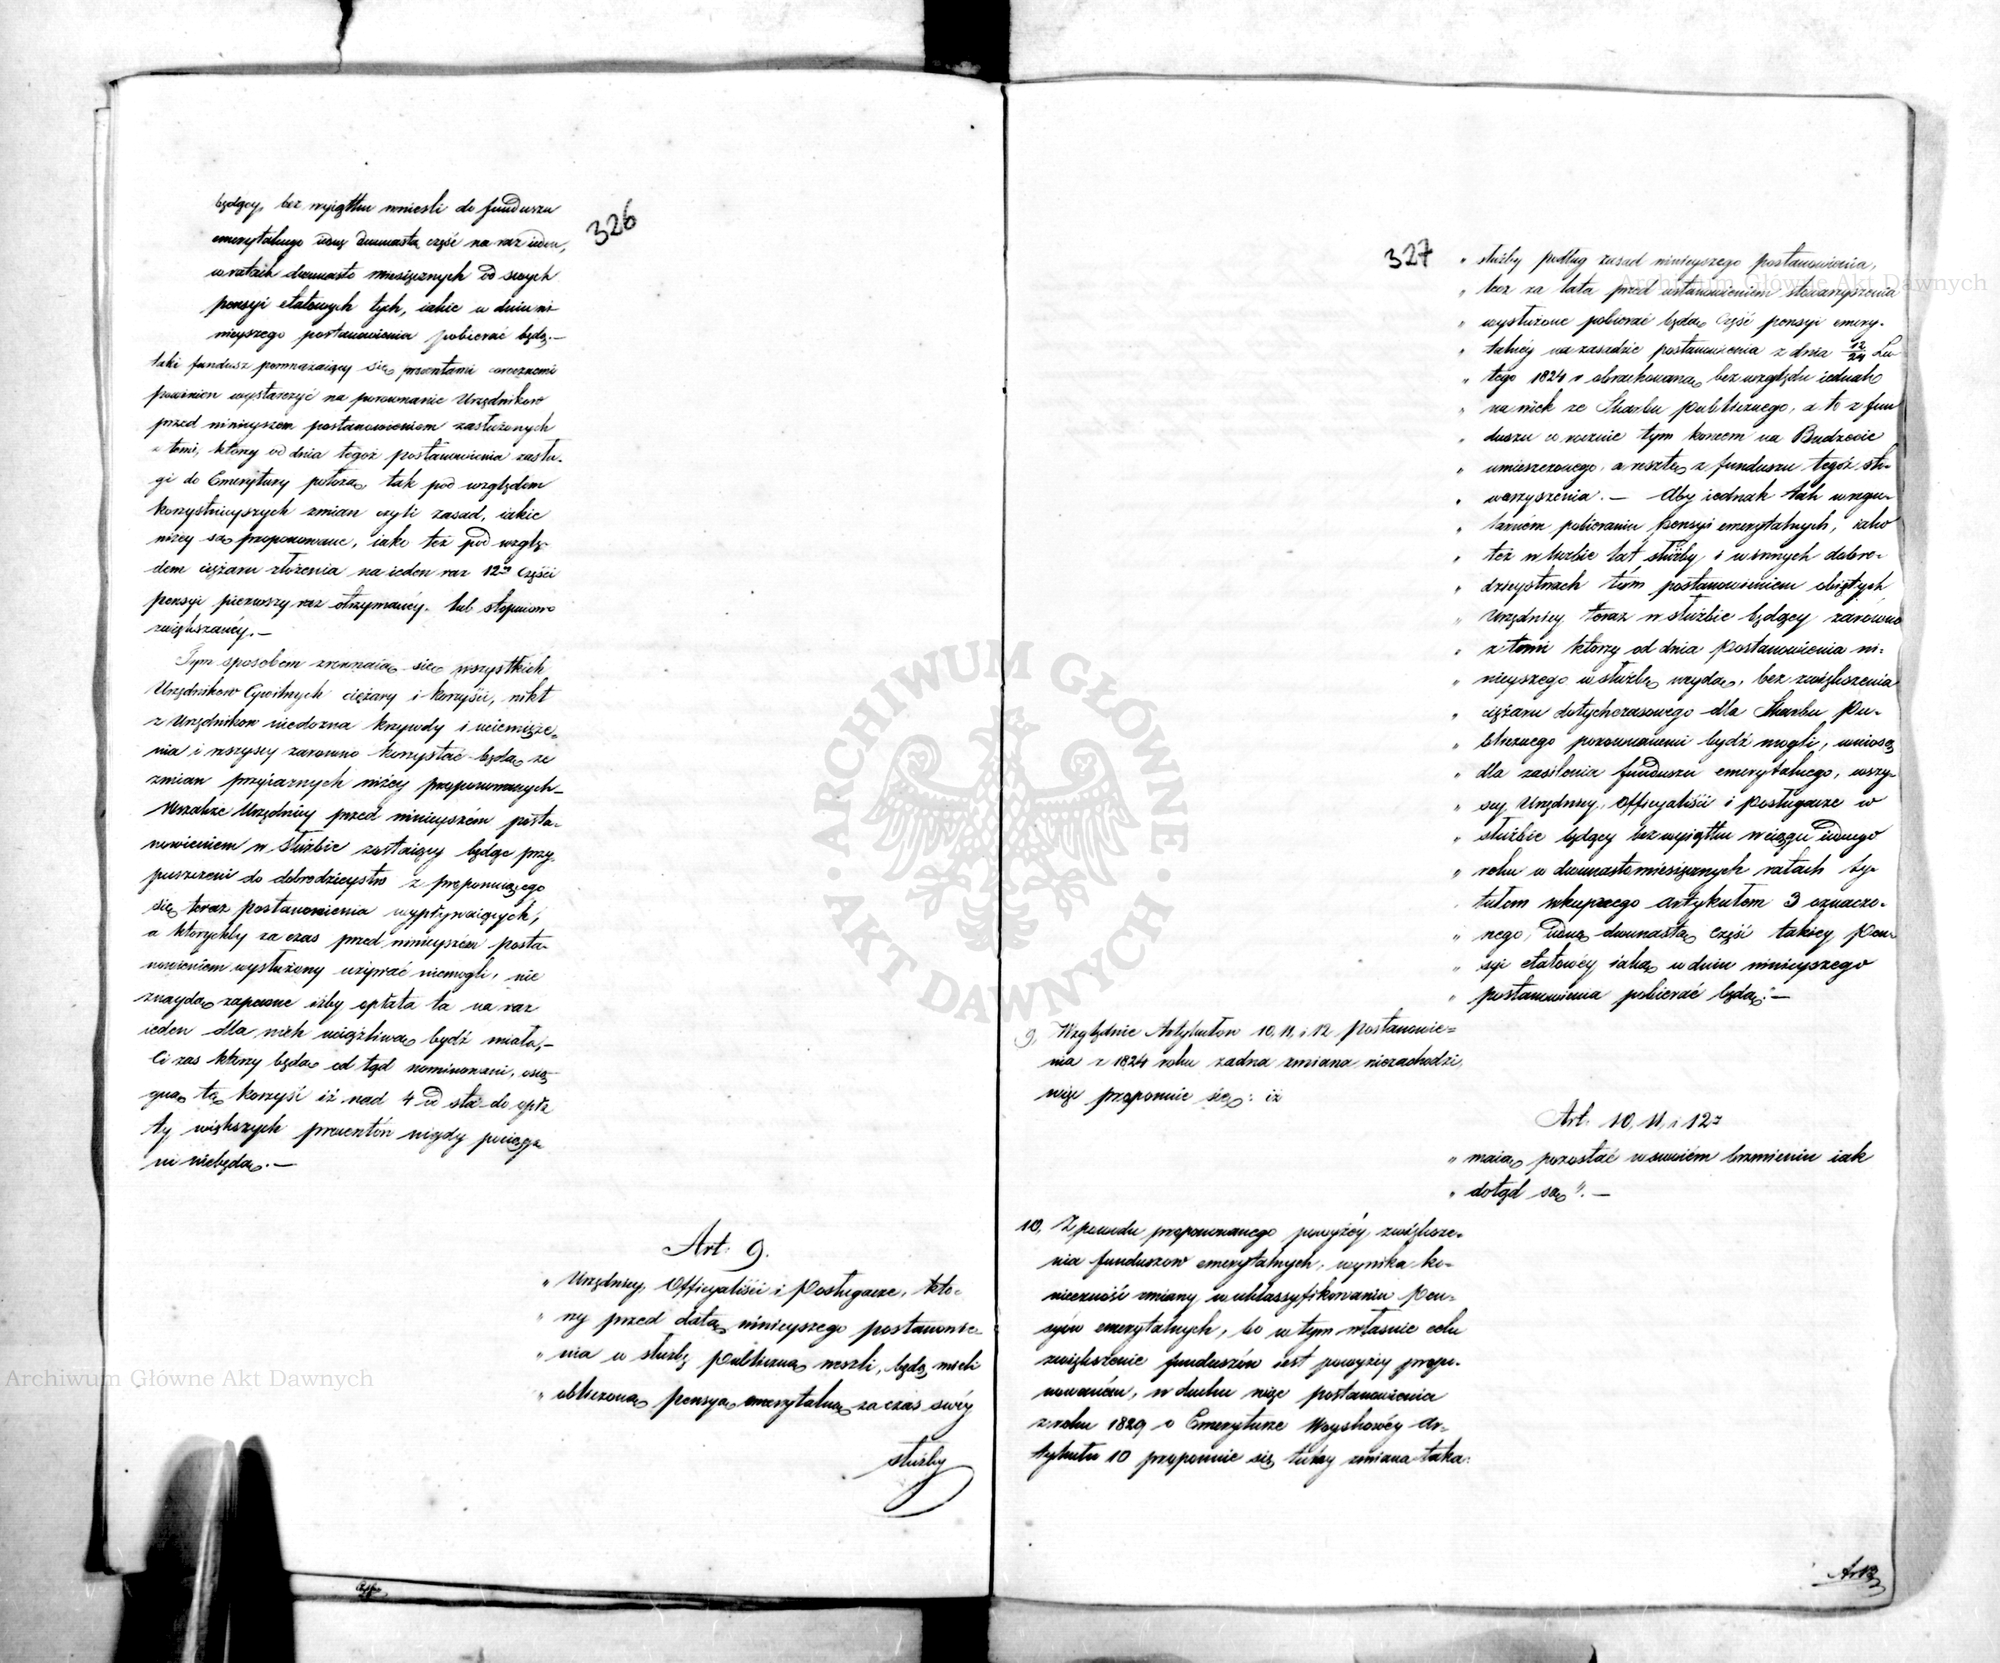 326
będący, bez wyiątku wnieśli do funduszu
emerytalnego iedną dwunastą część na raz ieden,
w ratach dwunasto miesięcznych od swych
pensyi etatowych tych, iakie w dniu ni-
nieyszego postanowienia pobierać będą.—
taki fundusz pomnażaiący się procentami corocznemi
powinien wystarczyć na porównanie Urzędników
przed ninieyszem postanowieniem zasłużonych
z temi, którzy od dnia tegoż postanowienia zasłu-
gi do Emerytury położą, tak pod względem
korzystnieyszych zmian czyli zasad, iakie
niżey są proponowane, iako też pod wzglę-
dem ciężaru złożenia na ieden raz 12éy Części
pensyi pierwszy raz otrzymanéy, lub stopniowo
zwiększanéy.—
Tym sposobem zrównaią się wszystkich
Urzędników Cywilnych ciężary i korzyści, nikt
z Urzędników niedozna krzywdy i uciemięże-
nia i wszyscy zarówno korzystać będą ze
zmian przyiaznych niżéy proponowanych—
Wszakże Urzędnicy przed ninieyszém posta-
nowieniem w służbie zostaiący będąc przy-
puszczeni do dobrodzieystw z proponuiącego
się teraz postanowienia wypływaiących,
a którychby za czas przed ninieyszém posta-
nowieniem wysłużony używać niemogli, nie
znaydą zapewne iżby opłata ta na raz
ieden dla nich uciążliwą bydź miała,—
Ci zaś którzy będą od tąd nominowani, osią-
gną tę korzyść iż nad 4 od sta do opła-
ty większych procentów nigdy pociąga-
ni niebędą.—
Art: 9.
„ Urzędnicy, Officyaliści i Posługacze, któ-
„ rzy przed datą ninieyszego postanowie-
„ nia w służbę Publiczną weszli, będą mieli
„ obliczoną pensyą emerytalną za czas swéy
służby
327
„ służby podług zasad ninieyszego postanowienia,
„ lecz za lata przed ustanowieniem stowarzyszenia
„ wysłużone pobierać będą Część pensyi emery-
„ talnéy na zasadzie postanowienia z dnia 12/24 Lu-
„ tego 1824 r obrachowaną, bez względu iednak
„ na wiek ze Skarbu publicznego, a to z fun
„ duszu corocznie tym końcem na Budżecie
„ umieszczonego, a resztę z funduszu tegoż sto-
„ warzyszenia.— Aby iednak tak w regu-
„ larném pobieraniu pensyi emerytalnych, iako
„ też w liczbie lat służby i w innych dobro-
„ dzieystwach tém postanowieniem obiętych
„ Urzędnicy teraz w służbie będący zarówno
„ z temi którzy od dnia Postanowienia ni-
„ nieyszego w służbę weydą, bez zwiększenia
„ ciężaru dotychczasowego dla Skarbu Pu-
„ blicznego porównanemi bydź mogli, wniosą
„ dla zasilenia funduszu emerytalnego, wszy-
„ scy Urzędnicy, Officyaliści i Posługacze w
„ służbie będący bez wyiątku w ciągu iednego
„ roku w dwunastomiesięcznych ratach ty-
„ tułem wkupnego Artykułem 3 oznaczo-
„ nego, iedną dwunastą Część takiey Pen-
„ syi etatowéy iaką w dniu ninieyszego
„ postanowienia pobierać będą."—
9, Względnie Artykułów 10, 11, i 12 Postanowie-
nia z 1824 roku żadna zmiana niezachodzi,
więc proponuie się: iż
Art: 10, 11, i 12y
„ maią pozostać w swoiém brzmieniu iak
„ dotąd są".—
10, Z powodu proponowanego powyżéy zwiększe-
nia funduszow emerytalnych, wynika ko-
nieczność zmiany w uklassyfikowaniu Pen-
syów emerytalnych, bo w tym właśnie celu
zwiększenie funduszów iest powyżéy propo-
nowaném, w duchu więc postanowienia
z roku 1829 o Emeryturze Woyskowéy Ar-
tykułu 10 proponuie się tutay zmiana taka:
Art 13
Archiwum Główne Akt Dawnych
Archiwum Główne Akt Dawnych
ARCHIWUM GŁÓWNE · AKT DAWNYCH ·